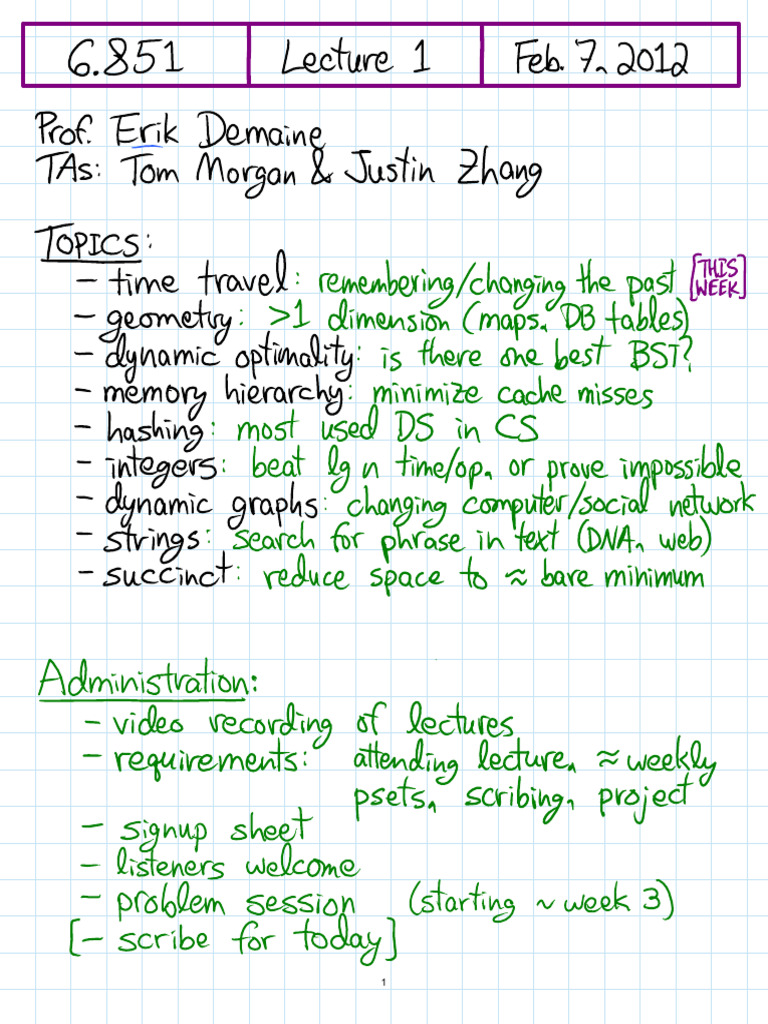 6.851 Lecture 1 Feb. 7, 2012
Prof. Erik Demaine
TAs: Tom Morgan & Justin Zhang
TOPICS:
- time travel: remembering/changing the past [THIS WEEK]
- geometry: >1 dimension (maps, DB tables)
- dynamic optimality: is there one best BST?
- memory hierarchy: minimize cache misses
- hashing: most used DS in CS
- integers: beat lg n time/op, or prove impossible
- dynamic graphs: changing computer/social network
- strings: search for phrase in text (DNA, web)
- succinct: reduce space to ≈ bare minimum
Administration:
- video recording of lectures
- requirements: attending lecture, ≈ weekly
psets, scribing, project
- signup sheet
- listeners welcome
- problem session (starting ~ week 3)
[- scribe for today]
1